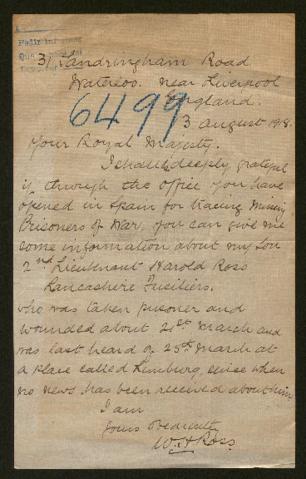 31 Sandringham Road
Waterloo. near Liverpool
England.
6499
3 august 1918.
Your Royal Majesty.
I shall deeply grateful
if through the office you have
opened in Spain for tracing Missing
Prisoners of War, you can give me
some information about my Son
2nd Lieutenant Harold Ross
Lancashire Fusiliers.
who was taken prisoner and
wounded about 21st March and
was last heard of 25th March at
a place called Limburg, since when
no news has been received about him
I am
Yours Obediently
W. H Ross